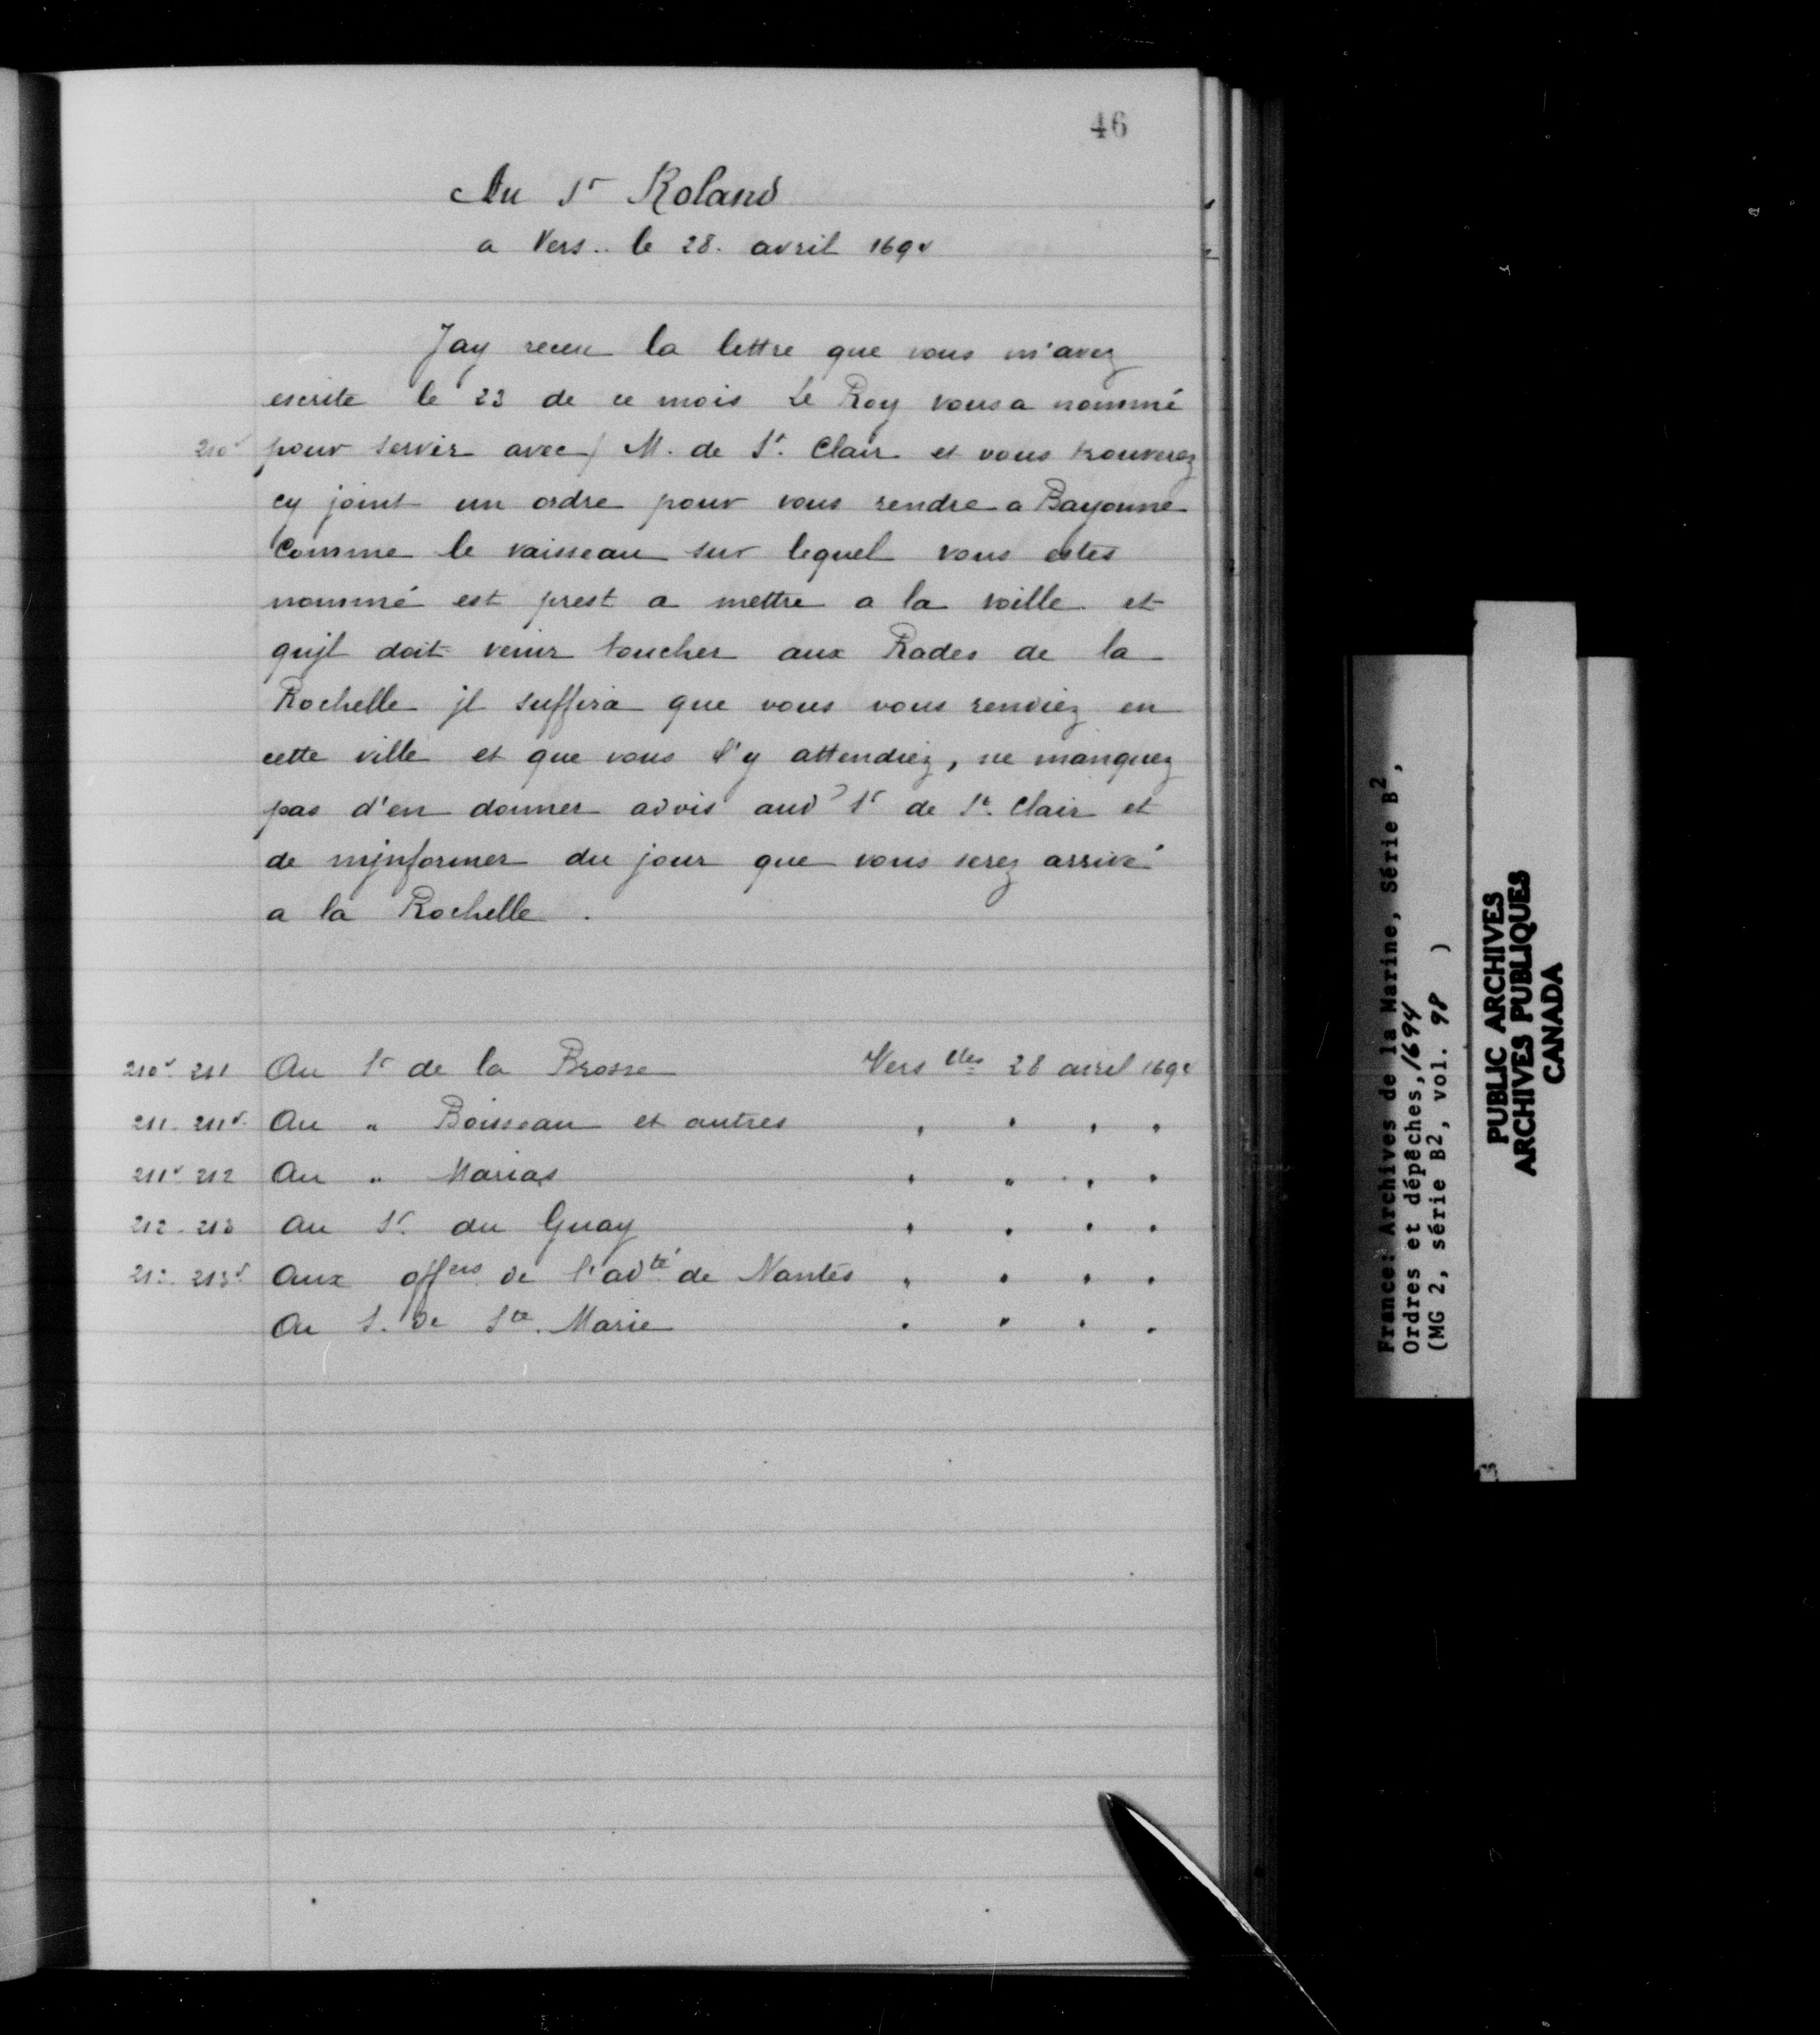 46
Au Sr Roland
a Vers.. le 28. avril 1694
Jay receu la lettre que vous m'avez
escrite le 23 de ce mois Le Roy vous a nommé
210v pour servir avec / M. de St. Clair et vous trouverez
cy joint un ordre pour vous rendre a Bayonne
Comme le vaisseau sur lequel vous estes
nommé est prest a mettre a la voille et
qujl doit venir toucher aux Rades de la
Rochelle jl suffira que vous vous rendiez en
cette ville et que vous l'y attendiez, ne manquez
pas d'en donner advis aud Sr de St. Clair et
de mjnformer du jour que vous serez arrivé
a la Rochelle.
210v 211 Au Sr de la Brosse Vers lles 28 avril 1694
211 - 211v. Au " Boisseau et autres " " " "
211v 212 Au " Marias " " " "
212 - 213 Au Sr. du Guay " " " "
213v Aux offers de l'adté de Nantes " " " "
Au S. de Ste. Marie " " " "
France: Archives de la Marine, Série B2,
Ordres et dépêches, 1694
(MG 2, série B2, vol. 98 )
PUBLIC ARCHIVES
ARCHIVES PUBLIQUES
CANADA